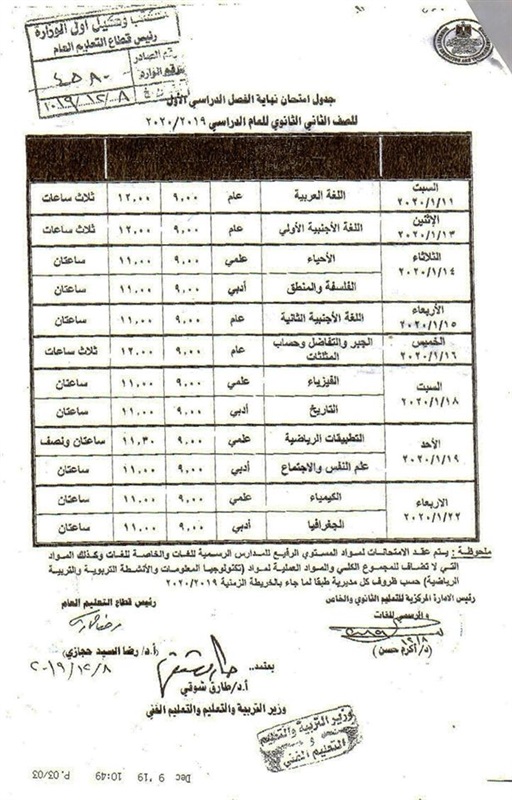 مكتب وكيل أول الوزارة
رئيس قطاع التعليم العام
رقم الصادر
٤٥٨٠
٢٠١٩/١٢/٨
جدول امتحان نهاية الفصل الدراسي الأول
للصف الثاني الثانوي للعام الدراسي ٢٠٢٠/٢٠١٩
السبت ٢٠٢٠/١/١١ اللغة العربية عام ٩,٠٠ ١٢,٠٠ ثلاث ساعات
الإثنين ٢٠٢٠/١/١٣ اللغة الأجنبية الأولي عام ٩,٠٠ ١٢,٠٠ ثلاث ساعات
الثلاثاء ٢٠٢٠/١/١٤ الأحياء علمي ٩,٠٠ ١١,٠٠ ساعتان
الفلسفة والمنطق أدبي ٩,٠٠ ١١,٠٠ ساعتان
الأربعاء ٢٠٢٠/١/١٥ اللغة الأجنبية الثانية عام ٩,٠٠ ١١,٠٠ ساعتان
الخميس ٢٠٢٠/١/١٦ الجبر والتفاضل وحساب المثلثات عام ٩,٠٠ ١٢,٠٠ ثلاث ساعات
السبت ٢٠٢٠/١/١٨ الفيزياء علمي ٩,٠٠ ١١,٠٠ ساعتان
التاريخ أدبي ٩,٠٠ ١١,٠٠ ساعتان
الأحد ٢٠٢٠/١/١٩ التطبيقات الرياضية علمي ٩,٠٠ ١١,٣٠ ساعتان ونصف
علم النفس والاجتماع أدبي ٩,٠٠ ١١,٠٠ ساعتان
الاربعاء ٢٠٢٠/١/٢٢ الكيمياء علمي ٩,٠٠ ١١,٠٠ ساعتان
الجغرافيا أدبي ٩,٠٠ ١١,٠٠ ساعتان
ملحوظة : يتم عقد الامتحانات لمواد المستوي الرفيع للمدارس الرسمية للغات والخاصة للغات وكذلك المواد
التي لا تضاف للمجموع الكلي والمواد العملية لمواد (تكنولوجيا المعلومات والأنشطة التربوية والتربية
الرياضية) حسب ظروف كل مديرية طبقا لما جاء بالخريطة الزمنية ٢٠٢٠/٢٠١٩
رئيس الادارة المركزية للتعليم الثانوي والخاص
والرسمي للغات
١٢/٨
(د/ أكرم حسن)
رئيس قطاع التعليم العام
(أ.د/ رضا السيد حجازي)
٢٠١٩/١٢/٨
يعتمد،،
أ.د/ طارق شوقي
وزير التربية والتعليم والتعليم الفني
وزير التربية والتعليم
و
التعليم الفني
Dec 9 '19 10:49 P.03/03